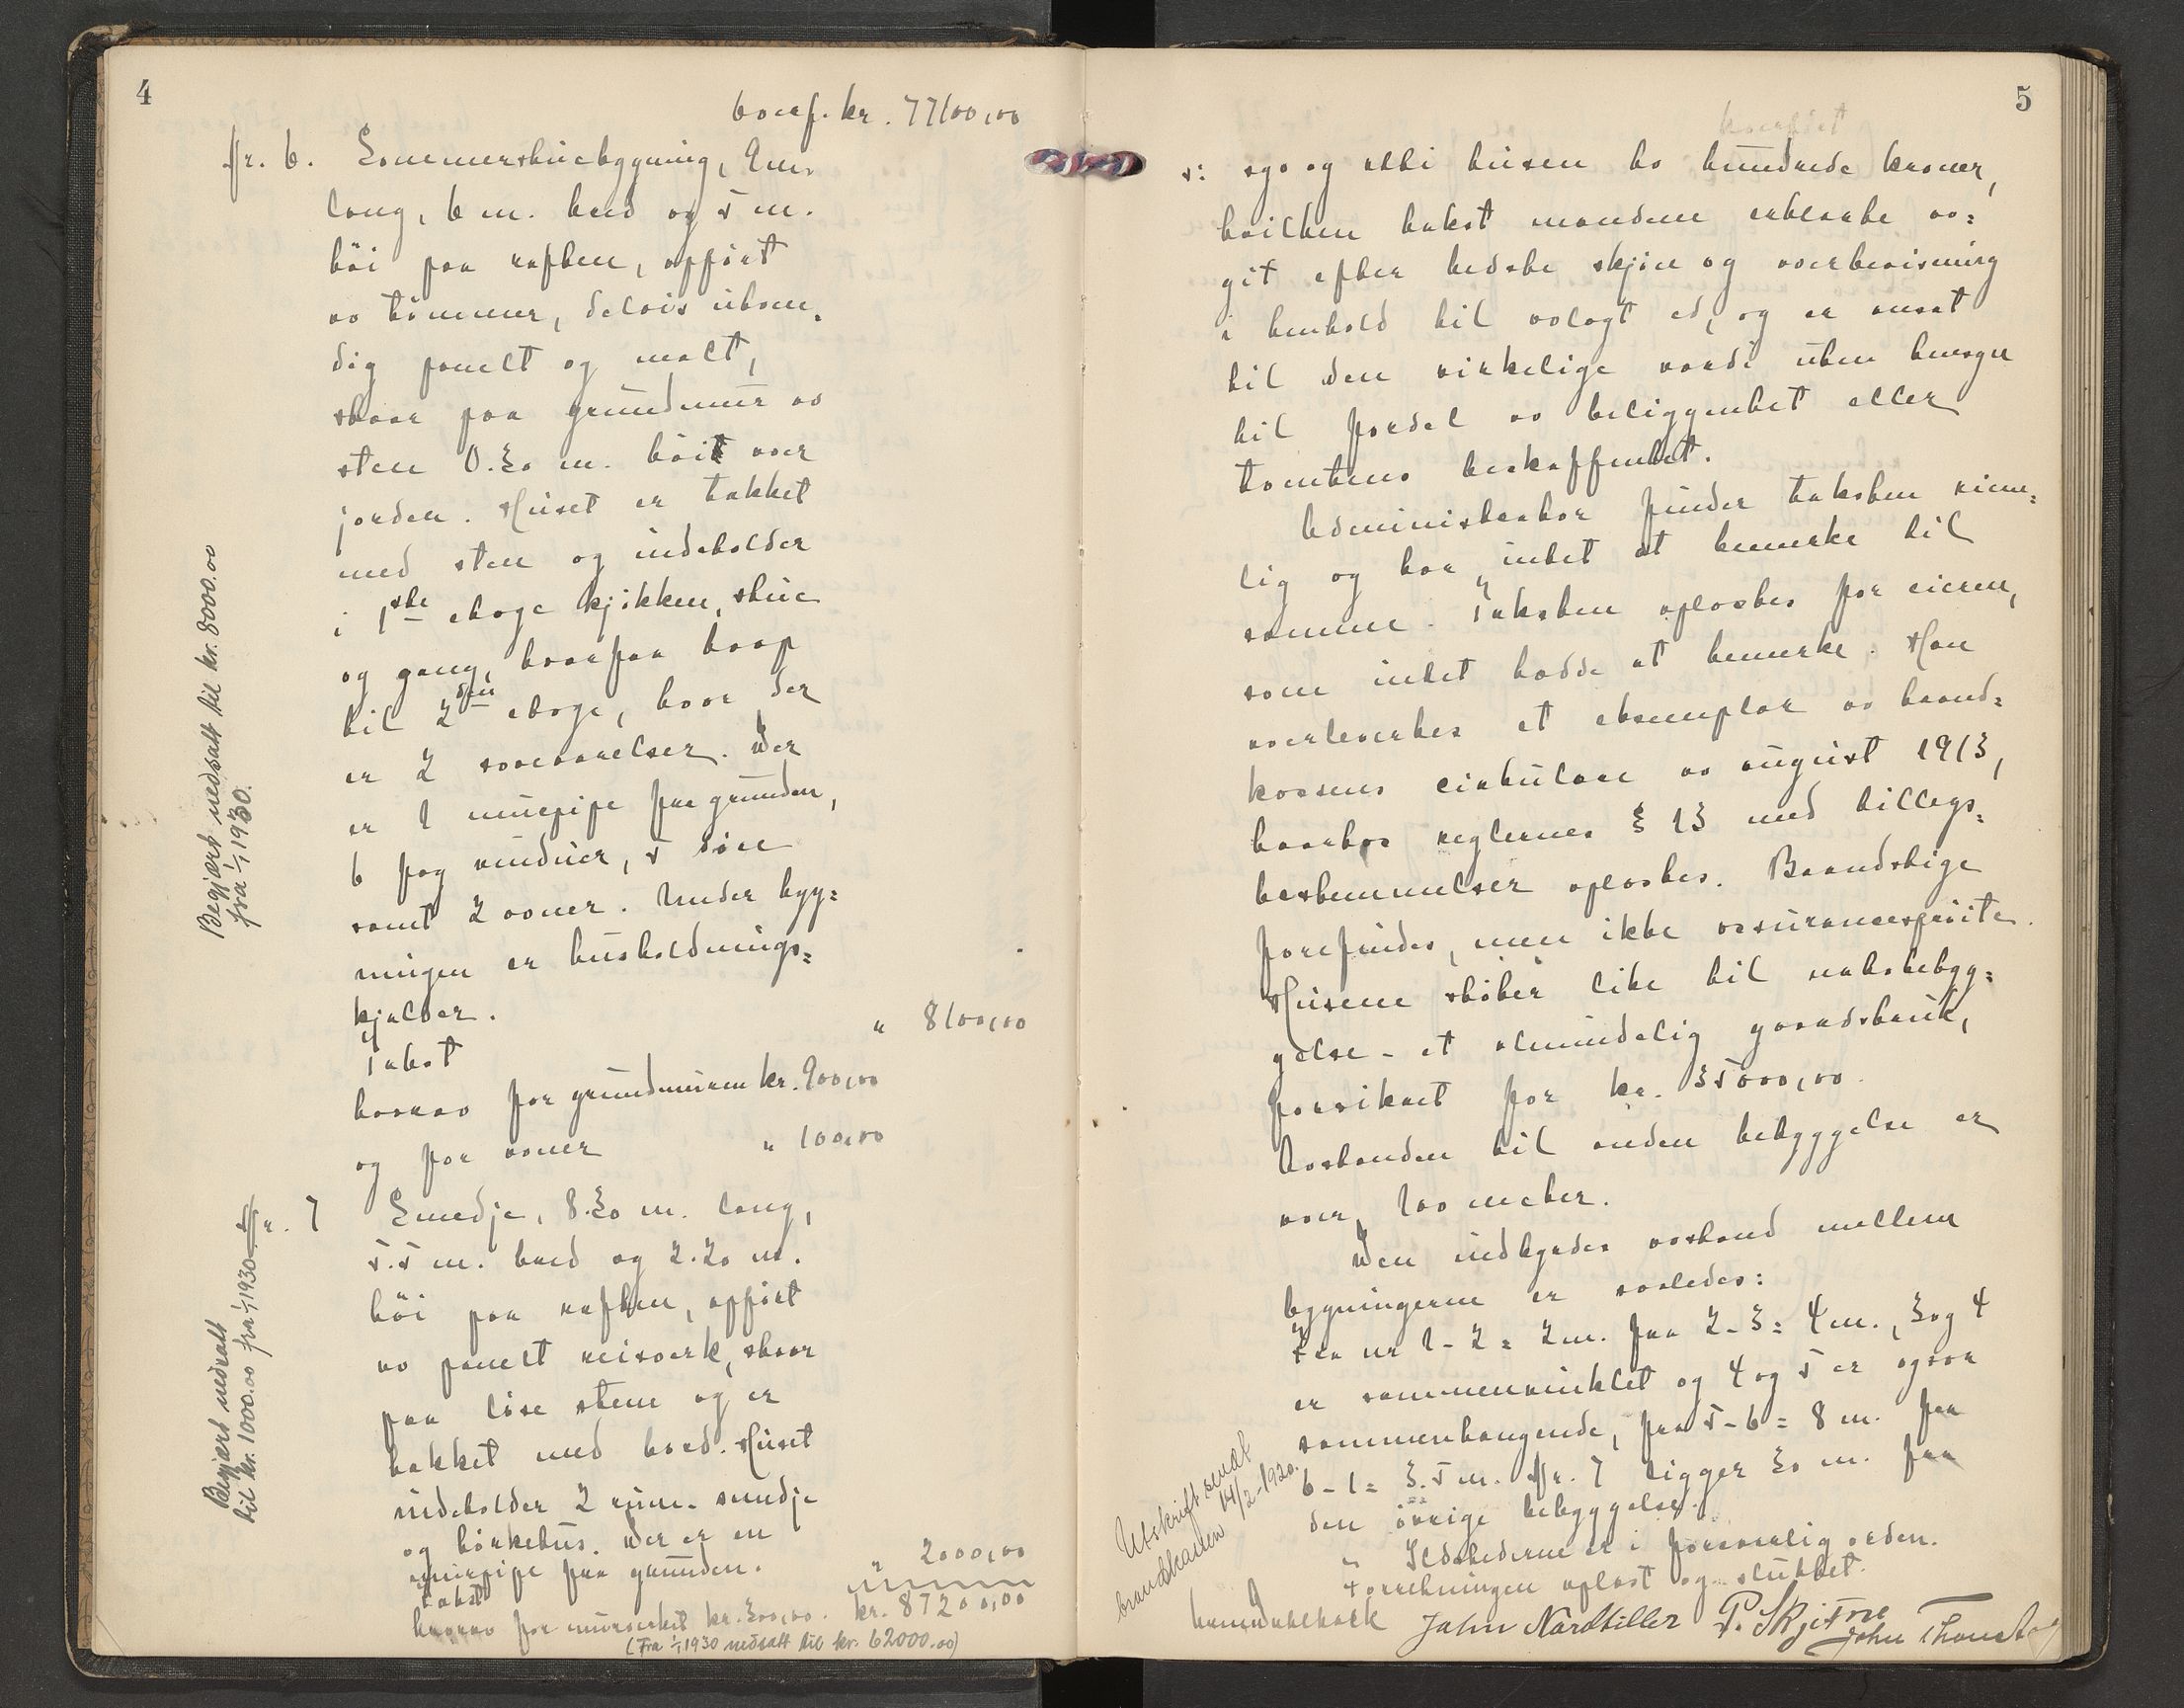 4
Overf. kr. 77100,00
Nr. 6. Sommerstuebygning, 9 m.
lang, 6 m. bred og 5 m.
høi paa raften, opført
av tømmer, delvis utven-
dig panelt og malt,
staar paa grundmur av
sten 0.30 m. høit over
jorden. Huset er tækket
med sten og indeholder
i 1ste etage kjøkken, stue
og gang, hvorfra trap
til 2den etage, hvor der
er 2 soveværelser. Der
er 1 murpipe fra grunden,
6 fag vinduer, 5 døre
samt 2 ovner. Under byg-
ningen er husholdnings-
kjælder.
Takst " 8100,00
hvorav for grundmuren kr. 900,00
og for ovner " 100,00
Nr. 7 Smedje, 8.30 m. lang,
5.5 m. bred og 2.20 m.
høi paa raften, opført
av panelt reisverk, staar
paa løse stene og er
tækket med bord. Huset
indeholder 2 rum - smedje
og tørkehus. Der er en
murpipe fra grunden.
Takst " 2000,00
hvorav for murverket kr. 300,00. kr. 87200,00
(Fra 1/1 1930 nedsatt til kr. 62000.00)
Begjært nedsatt til kr. 8000.00
fra 1/1 1930.
Begjært nedsatt
til kr. 1000.00 fra 1/1 1930
5
s: syv og otti tusen to hundrede kroner,
hvilken takst mændene erklærte av-
git efter bedste skjøn og overbevisning
i henhold til avlagt ed, og er ansat
til den virkelige værdi uten hensyn
til fordel av beliggenhet eller
tomtens beskaffenhet.
Administrator finder taksten rime-
lig og har intet at bemerke til
samme. Taksten oplæstes for eieren,
som intet hadde at bemerke. Han
overlevertes et eksemplar av brand-
kassens cirkulære av august 1913,
hvorhos reglernes § 13 med tillægs-
bestemmelser oplæstes. Brandstige
forefindes, men ikke assurancesprøite.
Husene støter like til nabobebyg-
gelse - et almindelig gaardsbruk,
forsikret for kr. 35000,00.
Avstanden til anden bebyggelse er
over 100 meter.
Den indbyrdes avstand mellem
bygningerne er saaledes:
Fra nr 1-2 = 2 m. fra 2-3 = 4 m., 3 og 4
er sammenvinklet og 4 og 5 er ogsaa
sammenhængende, fra 5-6 = 8 m. fra
6-1 = 3.5 m. Nr. 7 ligger 30 m. fra
den øvrige bebyggelse.
Ildstederne er i forsvarlig orden.
Forretningen oplæst og sluttet.
John Nardtiller P. Skjetne
John
Utskrift sendt
brandkassen 14/2-1920.